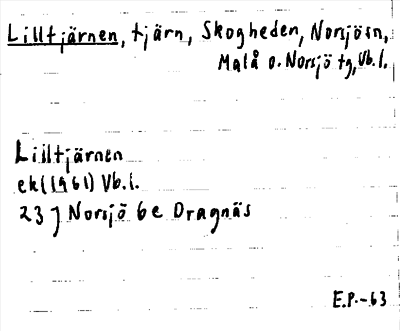 Lilltjärnen, tjärn, Skogheden, Norsjösn,
Malå o. Norsjö tg, Vb.l.
Lilltjärnen
ek (1961) Vb.l.
23 J Norsjö 6e Dragnäs
E.P.-63